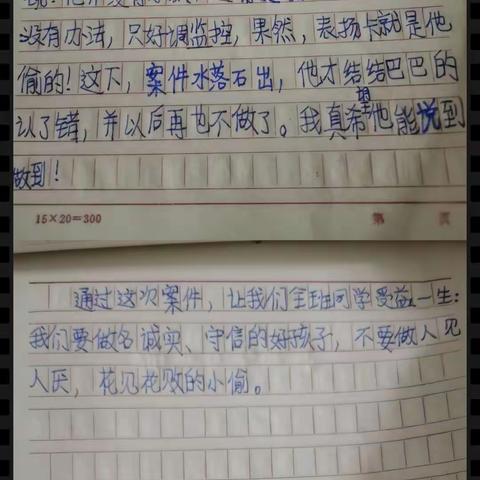 没有办法，只好调监控，果然，表扬卡就是他
偷的！这下，案件水落石出，他才结结巴巴的
认了错，并以后再也不做了。我真希望他能说到
做到！
15×20=300 第 页
通过这次案件，让我们全班同学受益一生：
我们要做名诚实、守信的好孩子，不要做人见
人厌，花见花败的小偷。